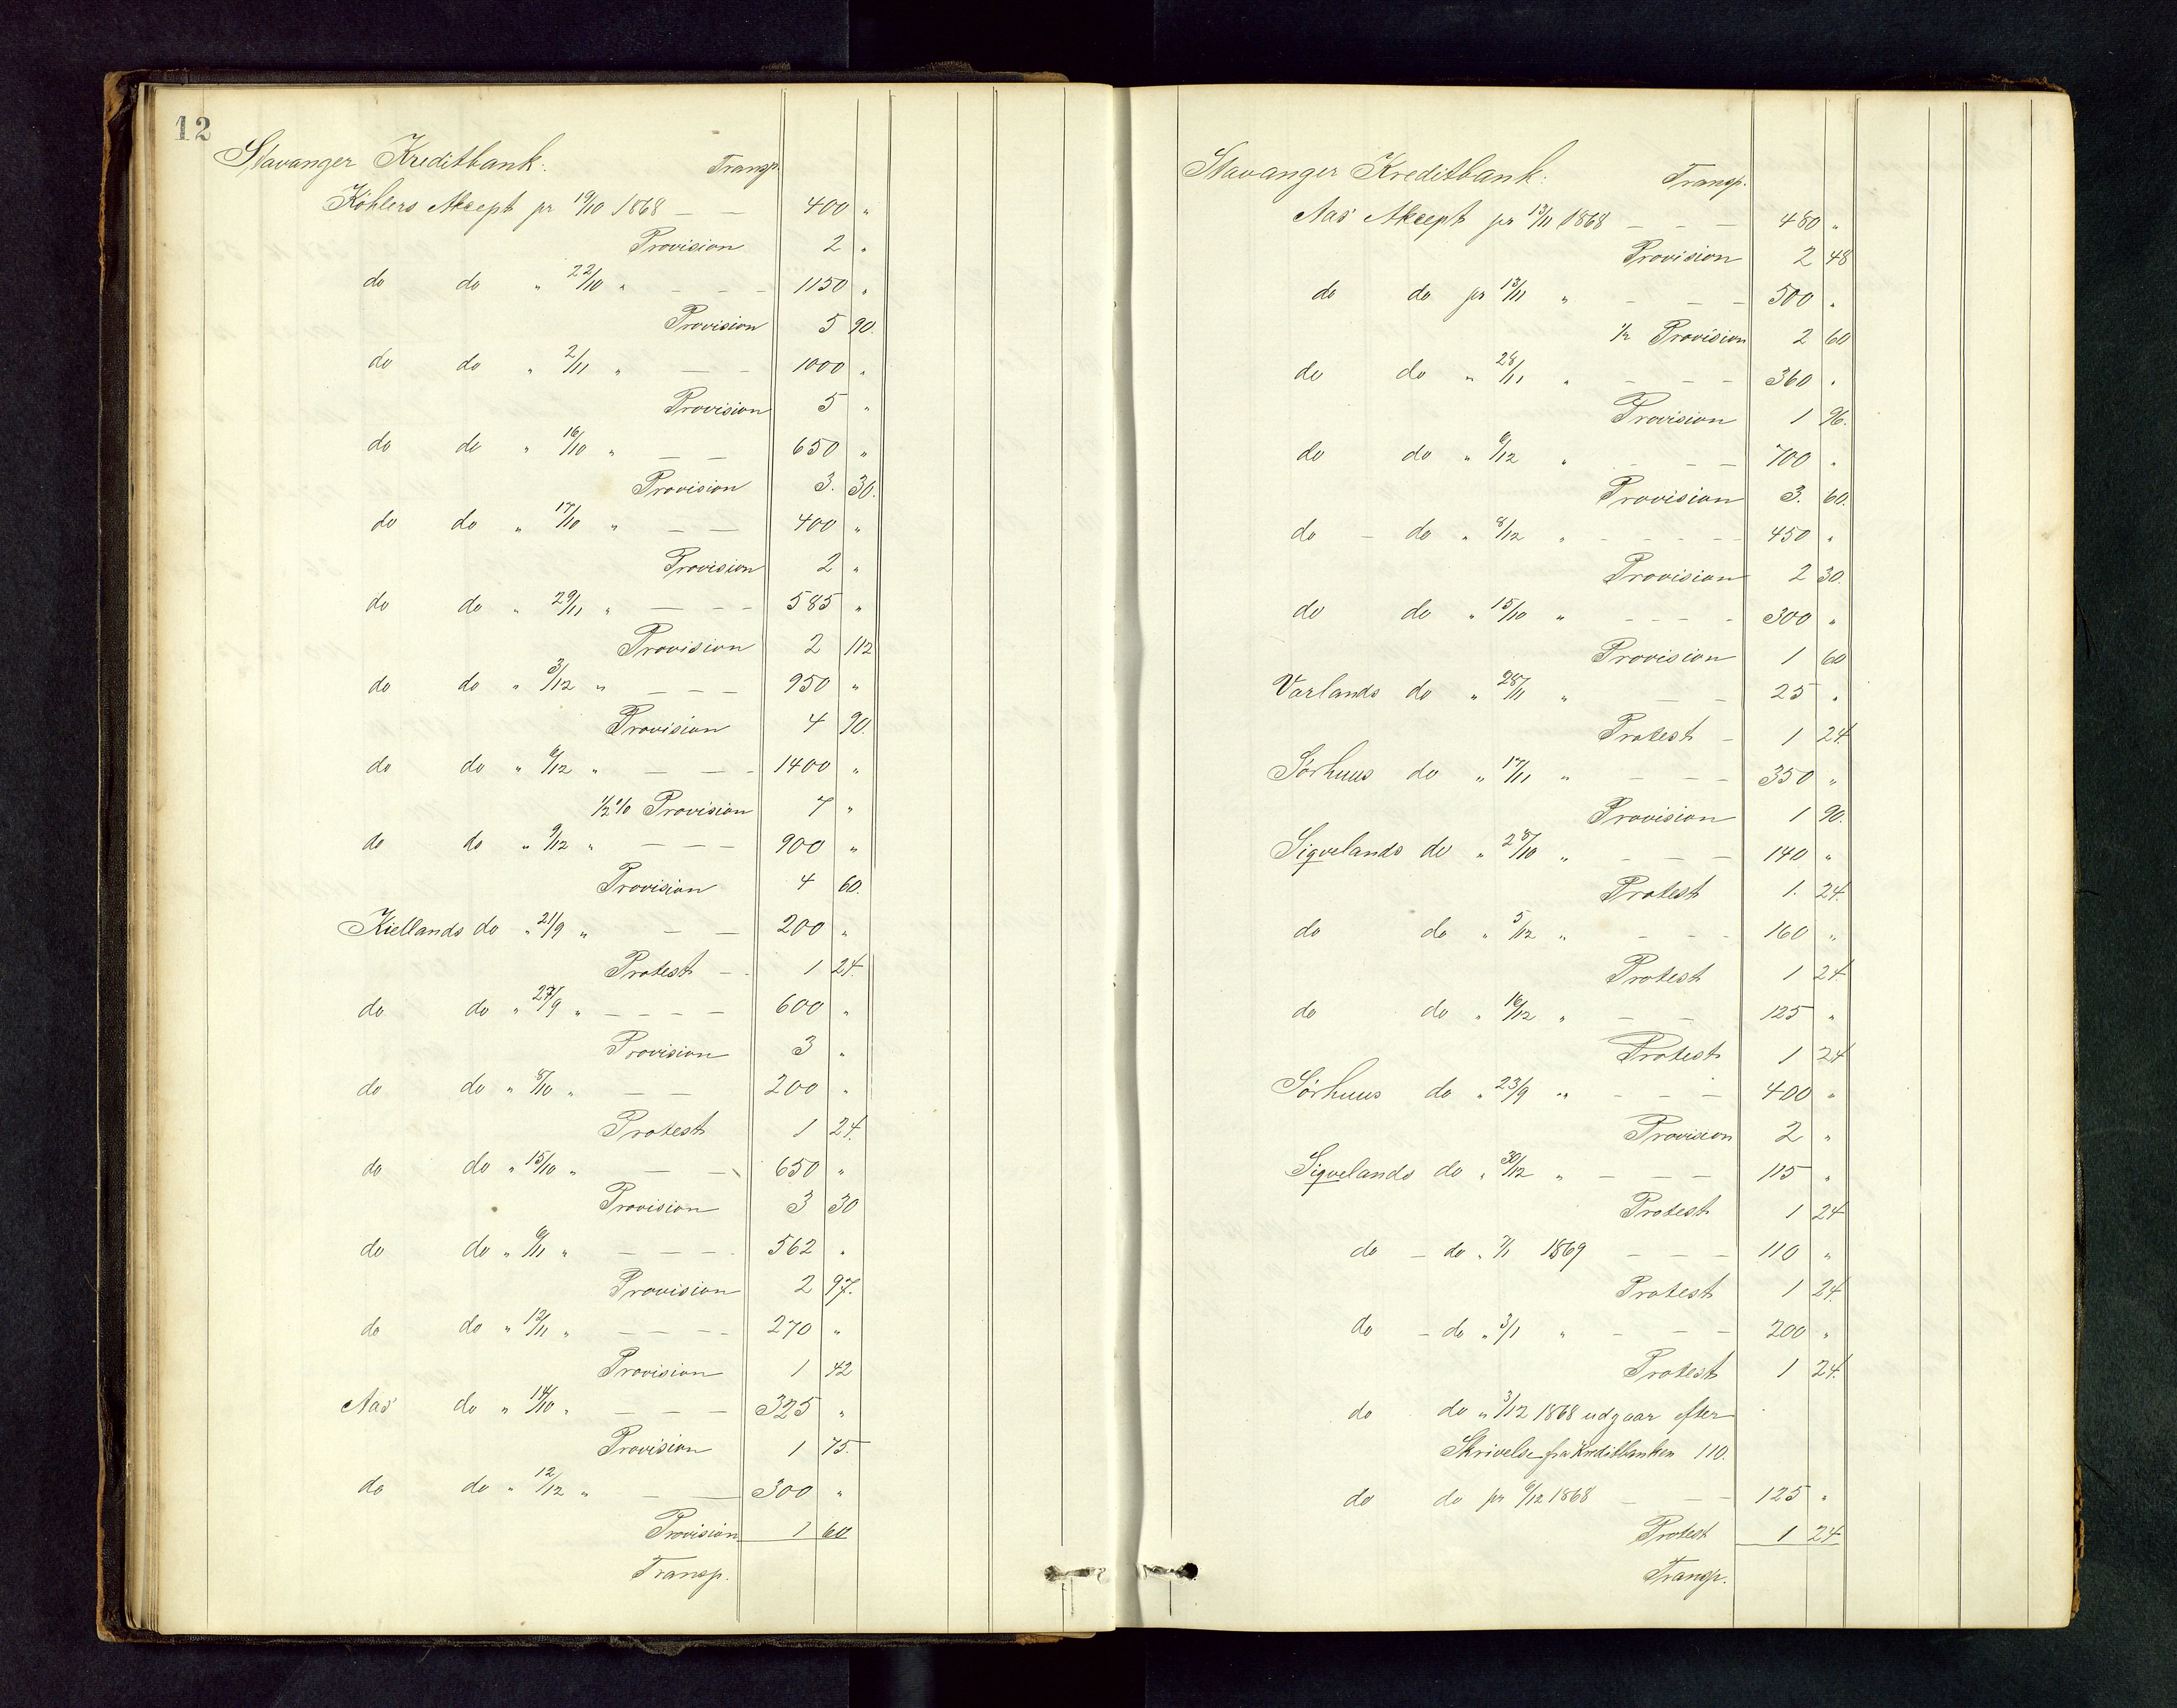 12
Stavanger Kreditbank. Transp.
Köhlers Akcept pr 19/10 1868 — — 400 "
Provision 2 "
do do " 22/10 " — — — 1150 "
Provision 5 90.
do do " 2/11 " — — 1000 "
Provision 5 "
do do " 16/10 " — — 650 "
Provision 3. 30.
do do " 17/10 " — — 400 "
Provision 2 "
do do " 29/11 " — — — 585 "
Provision 2 112
do do " 3/12 " — — — 950 "
Provision 4 90.
do do " 6/12 " — — — 1400 "
1/2 % Provision 7 "
do do " 9/12 " — — — 900 "
Provision 4 60.
Kiellands do " 21/9 " — — 200 "
Protest — 1 24.
do do " 27/9 " — — — — 600 "
Provision 3 "
do do " 8/10 " — — 200 "
Protest 1 24.
do do " 15/10 " — — 650 "
Provision 3 30
do do " 6/11 " — — — — 562 "
Provision 2 97.
do do " 12/11 " — — — — 270 "
Provision 1 42
Aas' do " 14/10 " — — — 325 "
Provision 1 75.
do do " 12/12 " — — 300 "
Provision 1 60
Transp.
Stavanger Kreditbank. Transp.
Aas' Akcept pr 13/11 1868 — — — 480 "
Provision 2 48
do do pr 13/11 " — — — 500 "
1/2 Provision 2 60
do do " 28/11 " — — — 360 "
Provision 1 96.
do do " 6/12 " — — — 700 "
Provision 3. 60.
do — do " 8/12 " — — — — 450 "
Provision 2 30.
do do " 15/10 " — — — — 300 "
Provision 1 60
Varlands do " 28/11 " — — 25 "
Protest — 1 24
Sörhuus do " 17/11 " — — — 350 "
Provision 1 90.
Siqvelands do " 28/10 " — — — 140 "
Protest 1. 24.
do do " 5/12 " — — — 160 "
Protest 1 24.
do do " 16/12 " — — 125 "
Protest 1 24
Sörhuus do " 23/9 " — — — 400 "
Provision 2 "
Siqvelands do " 30/12 " — — — — 115 "
Protest 1 24
do — do " 7/1 1869 — — — 110 "
Protest 1 24.
do — do " 3/1 " — — — 200 "
Protest 1 24.
do do " 3/12 1868 udgaar efter
Skrivelse fra Kreditbanken 110.
do do pr 6/12 1868 — — — 125 "
Protest 1 24
Transp.